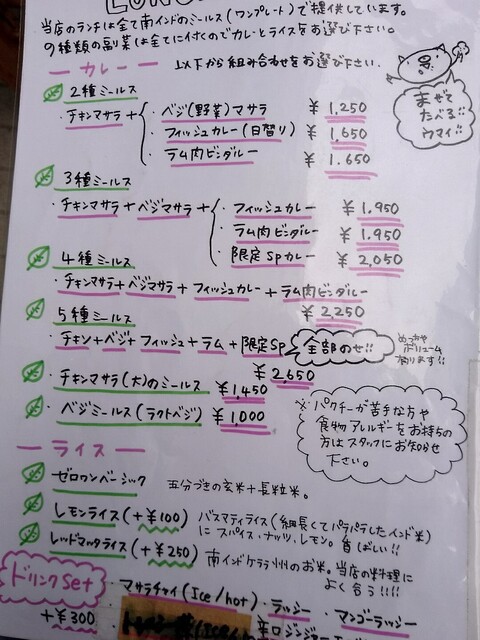 当店のランチは全て南インドのミールス(ワンプレート)で提供しています。
の種類の副菜は全てに付くのでカレーとライスをお選び下さい。
以下から組み合わせをお選び下さい.
まぜて
たべる!!
ウマイ!!
ー カレー ー
2種ミールス
・チキンマサラ +
・ベジ(野菜)マサラ ¥ 1,250
・フィッシュカレー(日替り) ¥ 1,650
・ラム肉ビンダルー ¥ 1.650
3種ミールス
・チキンマサラ + ベジマサラ +
・フィッシュカレー ¥ 1.950
・ラム肉ビンダルー ¥ 1,950
・限定SPカレー ¥ 2,050
4種ミールス
・チキンマサラ+ベジマサラ+フィッシュカレー+ラム肉ビンダルー
¥ 2,250
5種ミールス
・チキン+ベジ+フィッシュ+ラム+限定SP
全部のせ!!
¥ 2,650
・チキンマサラ(大)のミールス ¥ 1,450
・ベジミールス(ラクトベジ) ¥ 1,000
※パクチーが苦手な方や
食物アレルギーをお持ちの
方はスタッフにお知らせ
下さい。
ー ライス ー
ゼロワンベーシック 五分づきの玄米+長粒米。
レモンライス(+¥100) バスマティライス(細長くてパラパラしたインド米)
にスパイス・ナッツ、レモン。香ばしい!!
レッドマッタライス(+¥250) 南インドケララ州のお米。当店の料理に
よく合う!!!!
ドリンクset
+¥300
・マサラチャイ(Ice/hot)・ラッシー・マンゴーラッシー